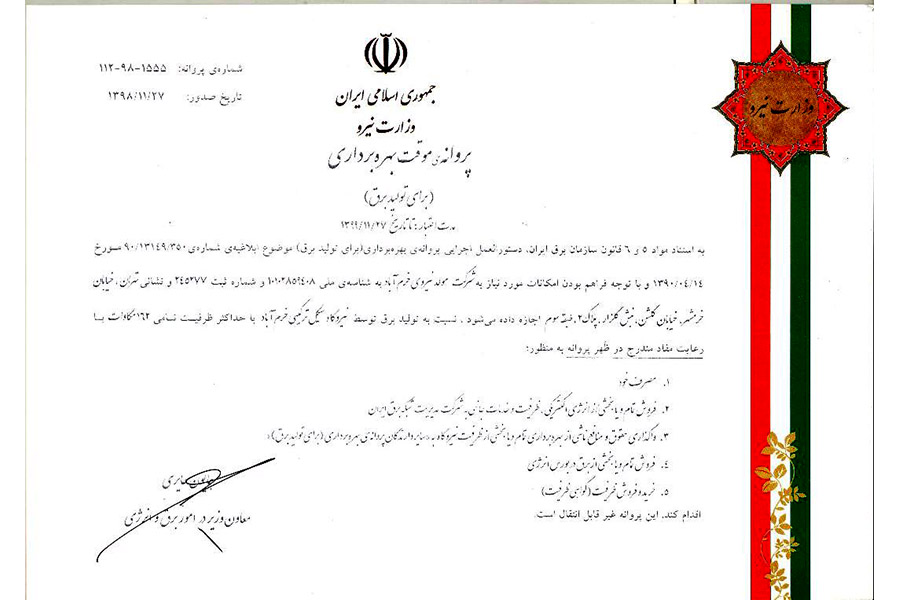 شماره‌ی پروانه: ۱۱۲-۹۸-۱۵۵۵
تاریخ صدور: ۱۳۹۸/۱۱/۲۷
جمهوری اسلامی ایران
وزارت نیرو
پروانه‌ی موقت بهره‌برداری
(برای تولید برق)
مدت اعتبار: تا تاریخ ۱۳۹۹/۱۱/۲۷
وزارت نیرو
به استناد مواد ۵ و ۶ قانون سازمان برق ایران، دستورالعمل اجرایی پروانه‌ی بهره‌برداری(برای تولید برق) موضوع ابلاغیه‌ی شماره‌ی ۹۰/۱۳۱۴۹/۳۵۰ مورخ
۱۳۹۰/۰۴/۱۴ و با توجه فراهم بودن امکانات مورد نیاز به شرکت مولد نیروی خرم‌آباد به شناسه‌ی ملی ۱۰۱۰۲۸۵۹۴۰۸ و شماره ثبت ۲۴۵۲۷۷ و نشانی تهران، خیابان
خرمشهر، خیابان گلشن، نبش گلزار، پلاک۲، طبقه سوم اجازه داده می‌شود، نسبت به تولید برق توسط نیروگاه سیکل ترکیبی خرم‌آباد به حداکثر ظرفیت نامی ۱۶۲مگاوات با
رعایت مفاد مندرج در ظهر پروانه به منظور:
۱. مصرف خود
۲. فروش تمام و یا بخشی از انرژی الکتریکی، ظرفیت و خدمات جانبی به شرکت مدیریت شبکه برق ایران
۳. واگذاری حقوق و منافع ناشی از بهره‌برداری تمام و یا بخشی از ظرفیت نیروگاه به «سایر دارندگان پروانه‌ی بهره‌برداری (برای تولید برق)»
۴. فروش تمام و یا بخشی از برق در بورس انرژی
۵. خرید و فروش ظرفیت (گواهی ظرفیت)
اقدام کند. این پروانه غیر قابل انتقال است.
همایون حایری
معاون وزیر در امور برق و انرژی